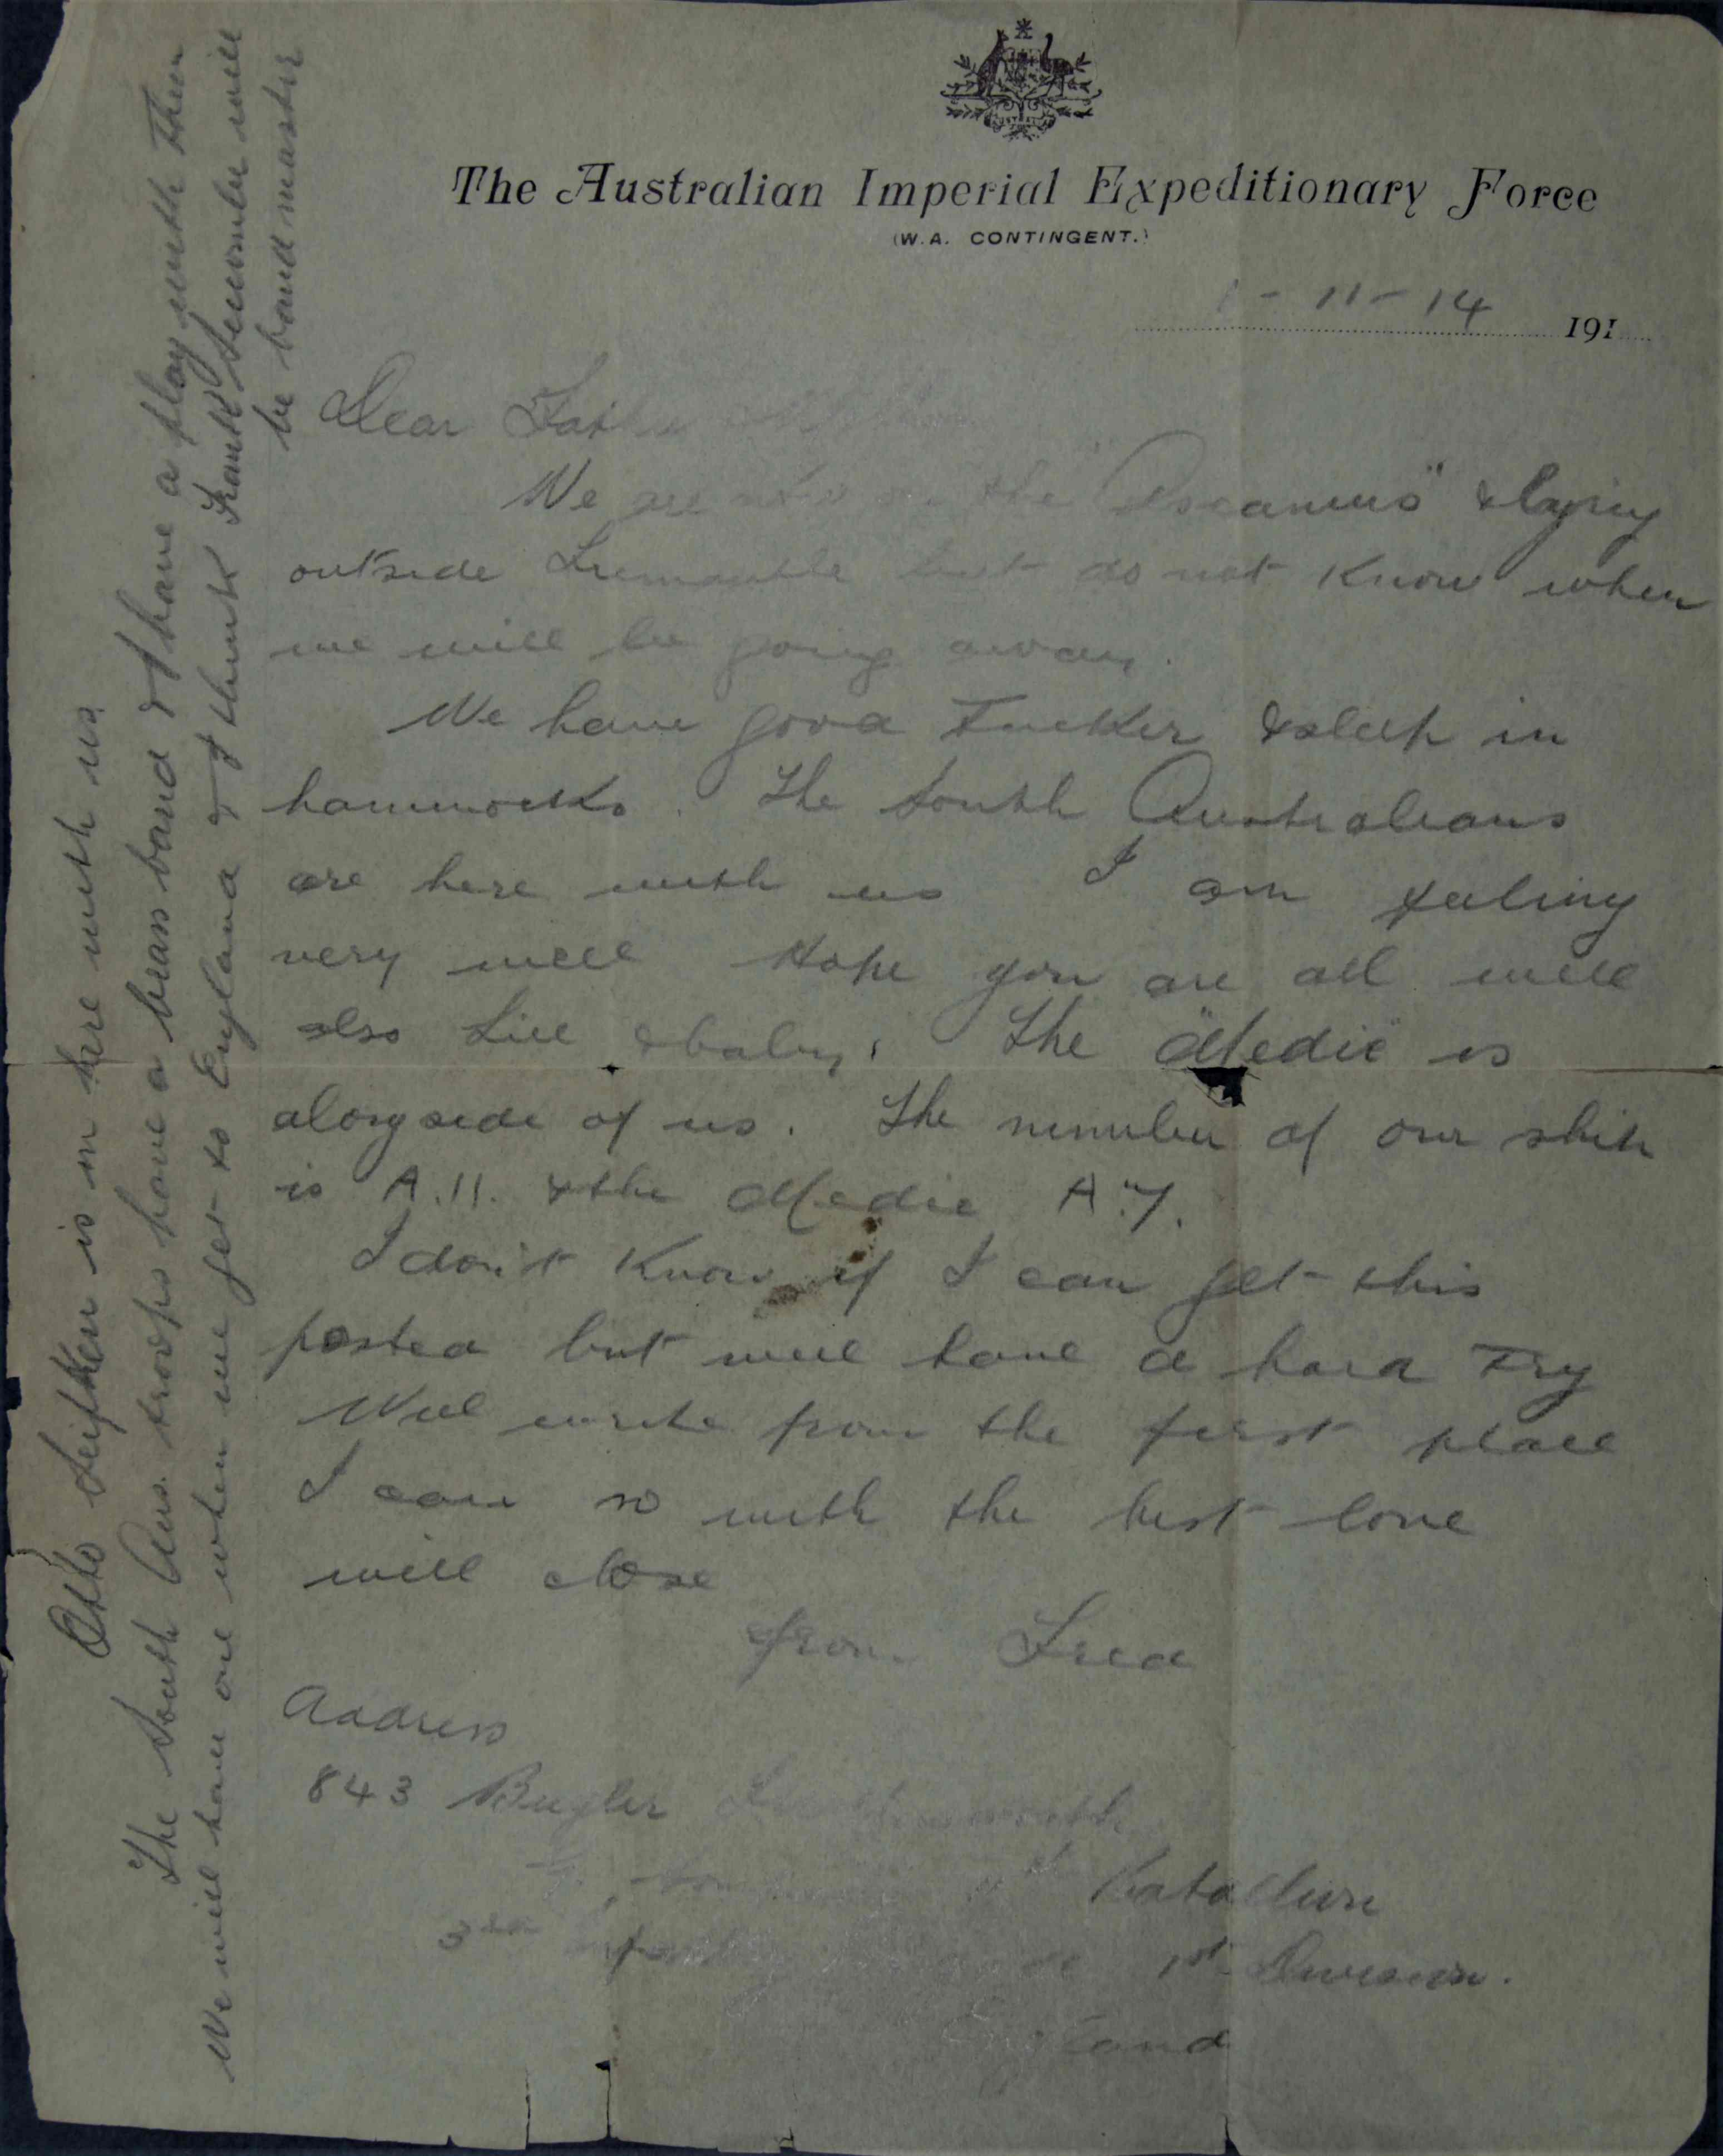 The Australian Imperial Expeditionary Force
(W.A. CONTINGENT.)
1 - 11 - 14 191
Dear Father
We are now on the "Ascanius" & laying
outside Fremantle but do not know when
we will be going away.
We have good Tucker & sleep in
hammocks. The South Australians
are here with us I am feeling
very well Hope you are all well
also Lill & baby. The "Medic" is
alongside of us. The number of our ship
is A.11. & the Medic A.7.
I don't know if I can get this
posted but will have a hard Try
Will write from the first place
I can so with the best love
will close
from Fred
Address
843 Bugler
Batallion
3rd 1st Division.
England
Otto Seifken is in here with us
The South Aus. troops have a brass band & I have a play with them
We will have one when we get to England & I think Frank will
be band master